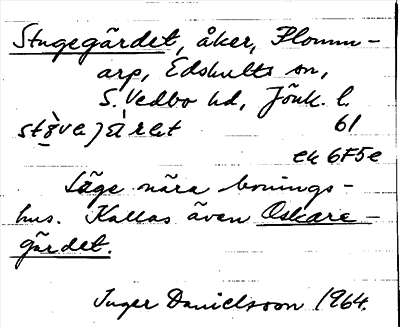 Stugegärdet, åker, Plomm-
arp, Edshults sn,
S. Vedbo hd, Jönk. l.
61
ek 6F5e
Läge nära bonings-
hus. Kallas även Oskars-
gärdet.
Inger Danielsson 1964.